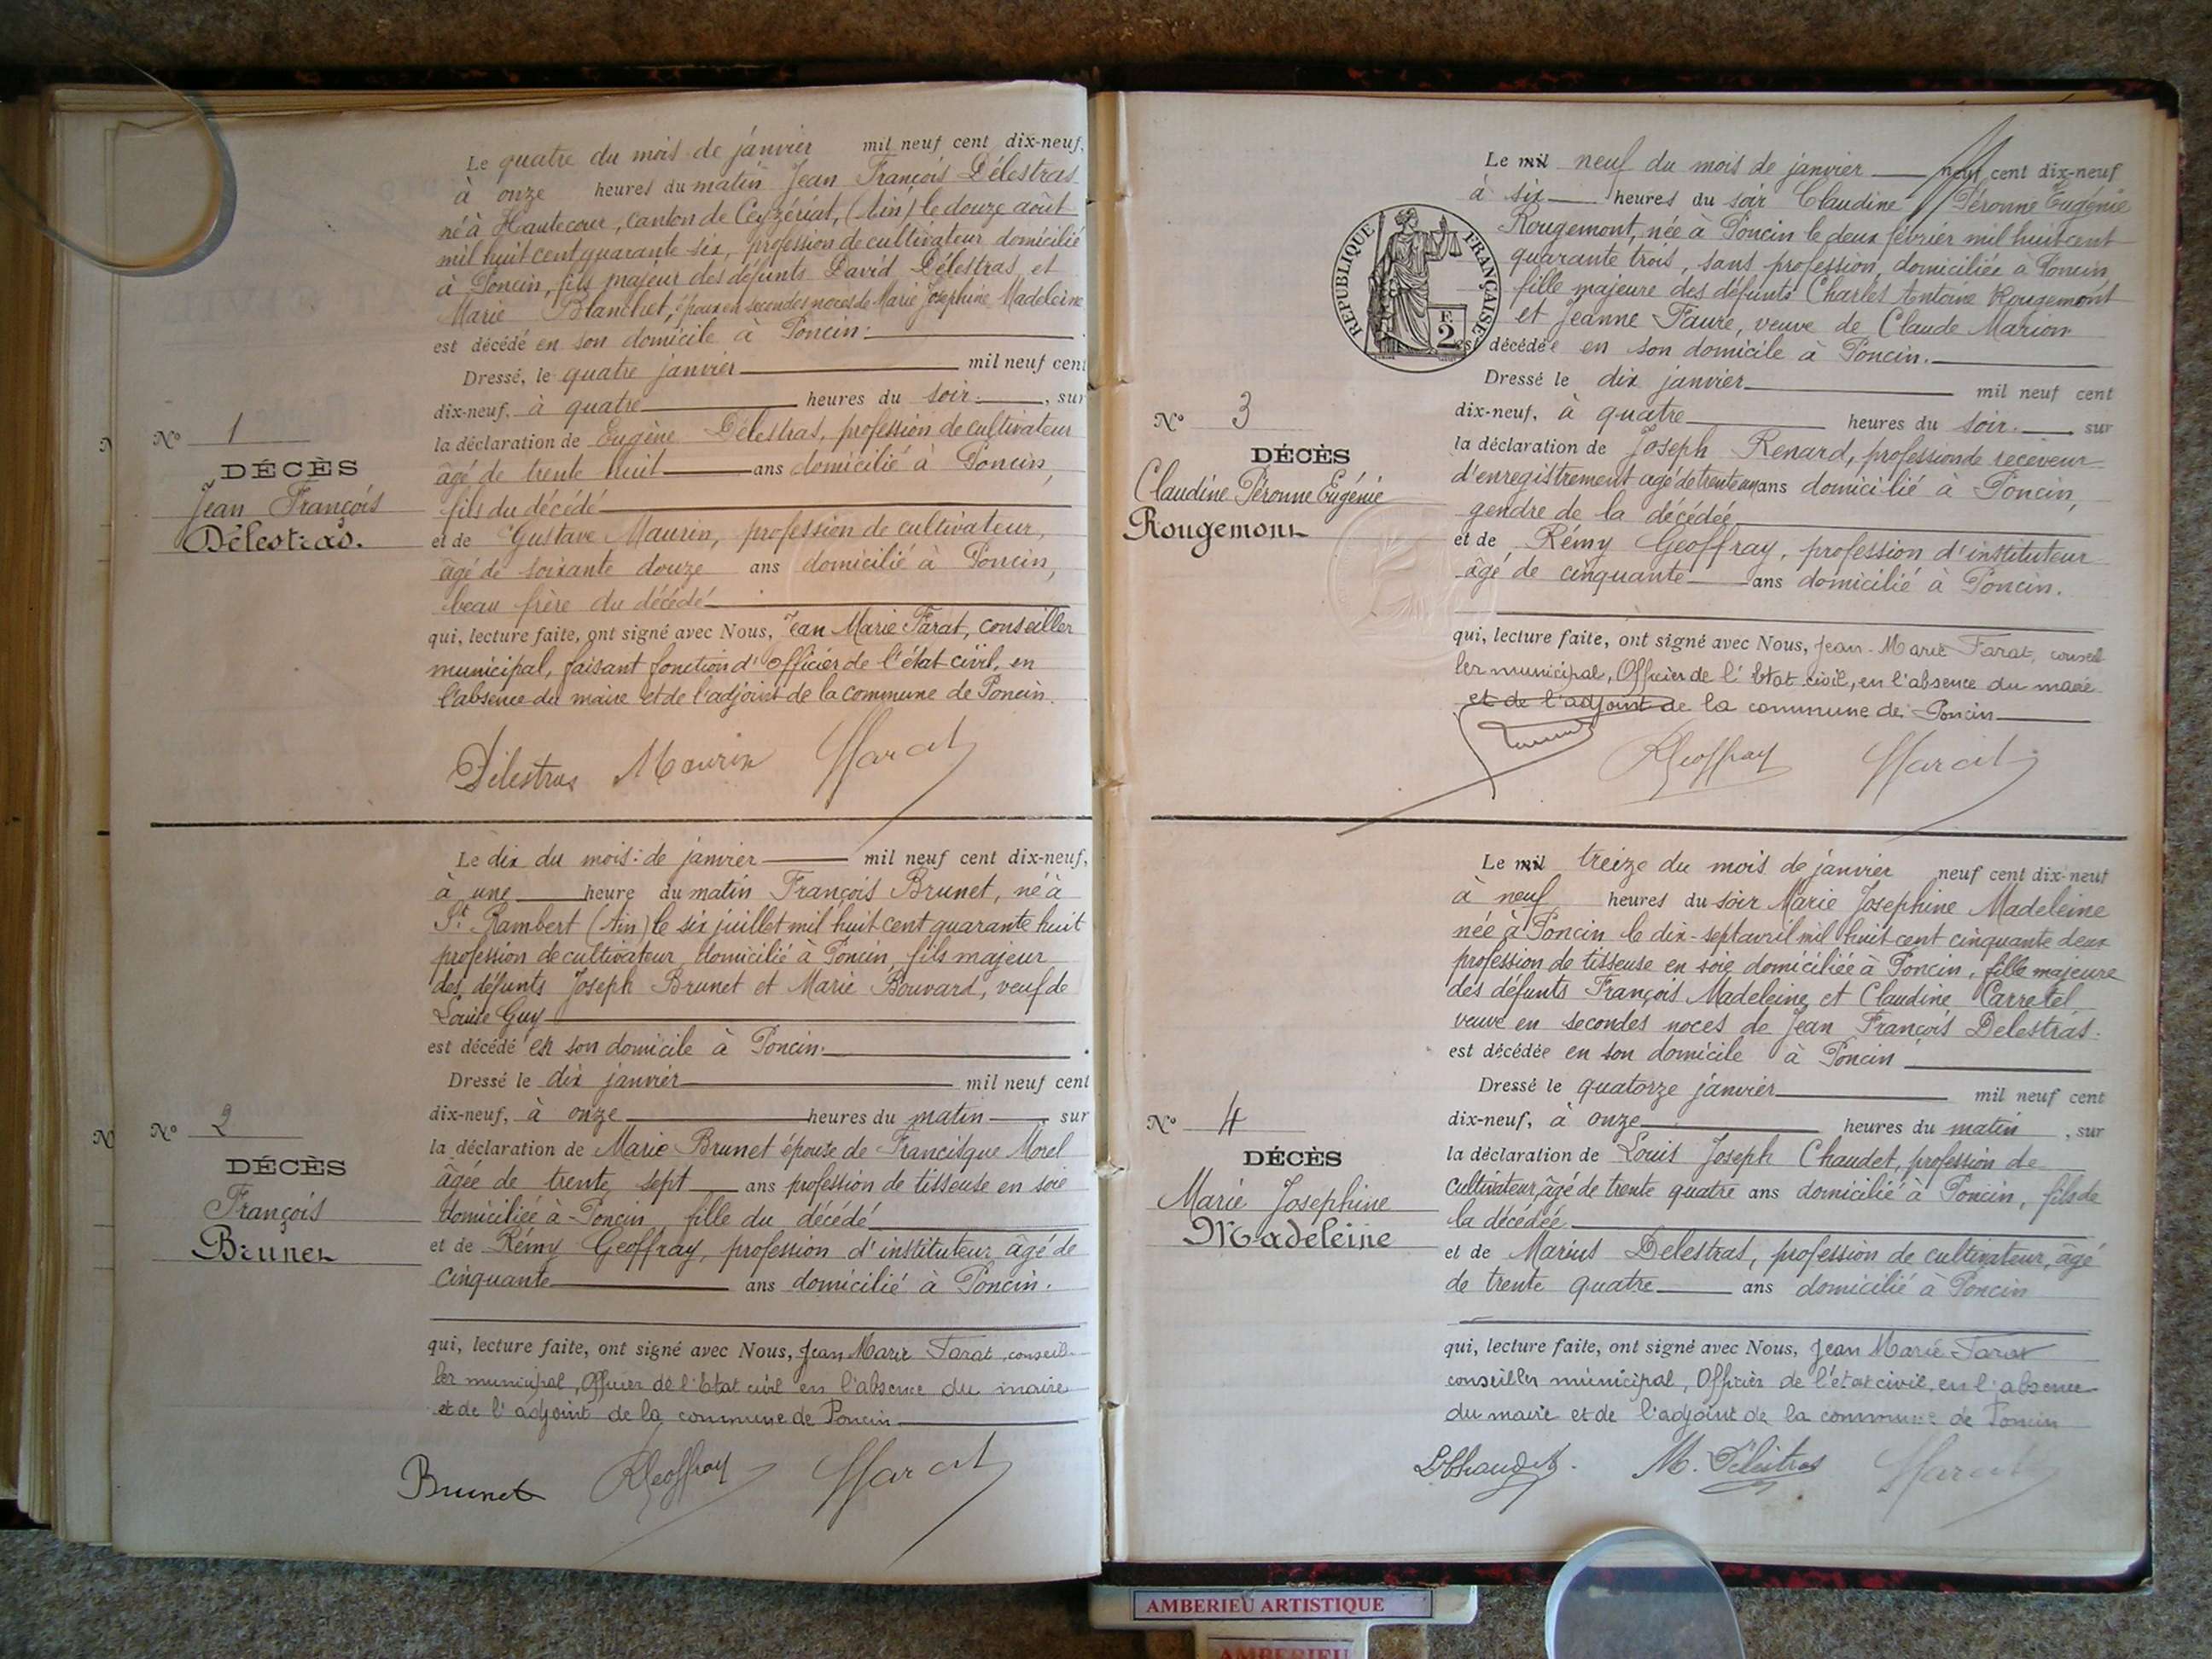 Le quatre du mois de janvier mil neuf cent dix-neuf,
à onze heures du matin Jean François Délestras
né à Hautecour, canton de Ceyzériat, (Ain) le douze août
mil huit cent quarante six, profession de cultivateur domicilié
à Poncin, fils majeur des défunts David Délestras, et
Marie Blanchet, époux en secondes noces de Marie Josephine Madeleine
est décédé en son domicile à Poncin:
Dressé, le quatre janvier mil neuf cent
dix-neuf, à quatre heures du soir, sur
la déclaration de Eugène Délestras, profession de cultivateur
âgé de trente huit ans domicilié à Poncin,
fils du décédé
et de Gustave Maurin, profession de cultivateur,
âgé de soixante douze ans domicilié à Poncin,
beau frère du décédé
qui, lecture faite, ont signé avec Nous, Jean Marie Farat, conseiller
municipal, faisant fonction d'officier de l'état civil, en
l'absence du maire et de l'adjoint de la commune de Poncin.
Délestras Maurin Farat
N° 1
DÉCÈS
Jean François
Délestras.
Le dix du mois de janvier mil neuf cent dix-neuf,
à une heure du matin François Brunet, né à
St. Rambert (Ain) le six juillet mil huit cent quarante huit
profession de cultivateur, domicilié à Poncin, fils majeur
des défunts Joseph Brunet et Marie Bouvard, veuf de
Louise Guy
est décédé en son domicile à Poncin.
Dressé le dix janvier mil neuf cent
dix-neuf, à onze heures du matin, sur
la déclaration de Marie Brunet épouse de Francisque Morel
âgée de trente sept ans profession de tisseuse en soie
domiciliée à Poncin, fille du décédé
et de Rémy Geoffray, profession d'instituteur âgé de
cinquante ans domicilié à Poncin.
qui, lecture faite, ont signé avec Nous, Jean Marie Farat, conseil-
ler municipal, Officier de l'Etat civil en l'absence du maire
et de l'adjoint de la commune de Poncin
Brunet RGeoffray Farat
N° 2
DÉCÈS
François
Brunet
Le mil neuf du mois de janvier neuf cent dix-neuf
à six heures du soir Claudine Péronne Eugénie
Rougemont, née à Poncin le deux février mil huit cent
quarante trois, sans profession, domiciliée à Poncin,
fille majeure des défunts Charles Antoine Rougemont
et Jeanne Faure, veuve de Claude Marion
est décédée en son domicile à Poncin.
Dressé le dix janvier mil neuf cent
dix-neuf, à quatre heures du soir. sur
la déclaration de Joseph Renard, profession de receveur
d'enregistrement agé de trente un ans domicilié à Poncin,
gendre de la décédée
et de Rémy Geoffray, profession d'instituteur
âgé de cinquante ans domicilié à Poncin.
qui, lecture faite, ont signé avec Nous, Jean-Marie Farat, conseil
ler municipal, Officier de l'Etat civil, en l'absence du maire
et de l'adjoint de la commune de Poncin
RGeoffray Farat
RÉPUBLIQUE FRANÇAISE
2 F
N° 3
DÉCÈS
Claudine Péronne Eugénie
Rougemont
Le mil treize du mois de janvier neuf cent dix-neuf
à neuf heures du soir Marie Josephine Madeleine
née à Poncin le dix-sept avril mil huit cent cinquante deux
profession de tisseuse en soie domiciliée à Poncin, fille majeure
des défunts François Madeleine et Claudine Carretel
veuve en secondes noces de Jean François Delestras.
est décédée en son domicile à Poncin
Dressé le quatorze janvier mil neuf cent
dix-neuf, à onze heures du matin, sur
la déclaration de Louis Joseph Chaudet, profession de
cultivateur, âgé de trente quatre ans domicilié à Poncin, fils de
la décédée
et de Marius Delestras, profession de cultivateur, âgé
de trente quatre ans domicilié à Poncin
qui, lecture faite, ont signé avec Nous, Jean Marie Farat
conseiller municipal, Officier de l'état civil, en l'absence
du maire et de l'adjoint de la commune de Poncin
LChaudet. M. Délestras Farat
N° 4
DÉCÈS
Marie Josephine
Madeleine
AMBERIEU ARTISTIQUE
AMBERIEU